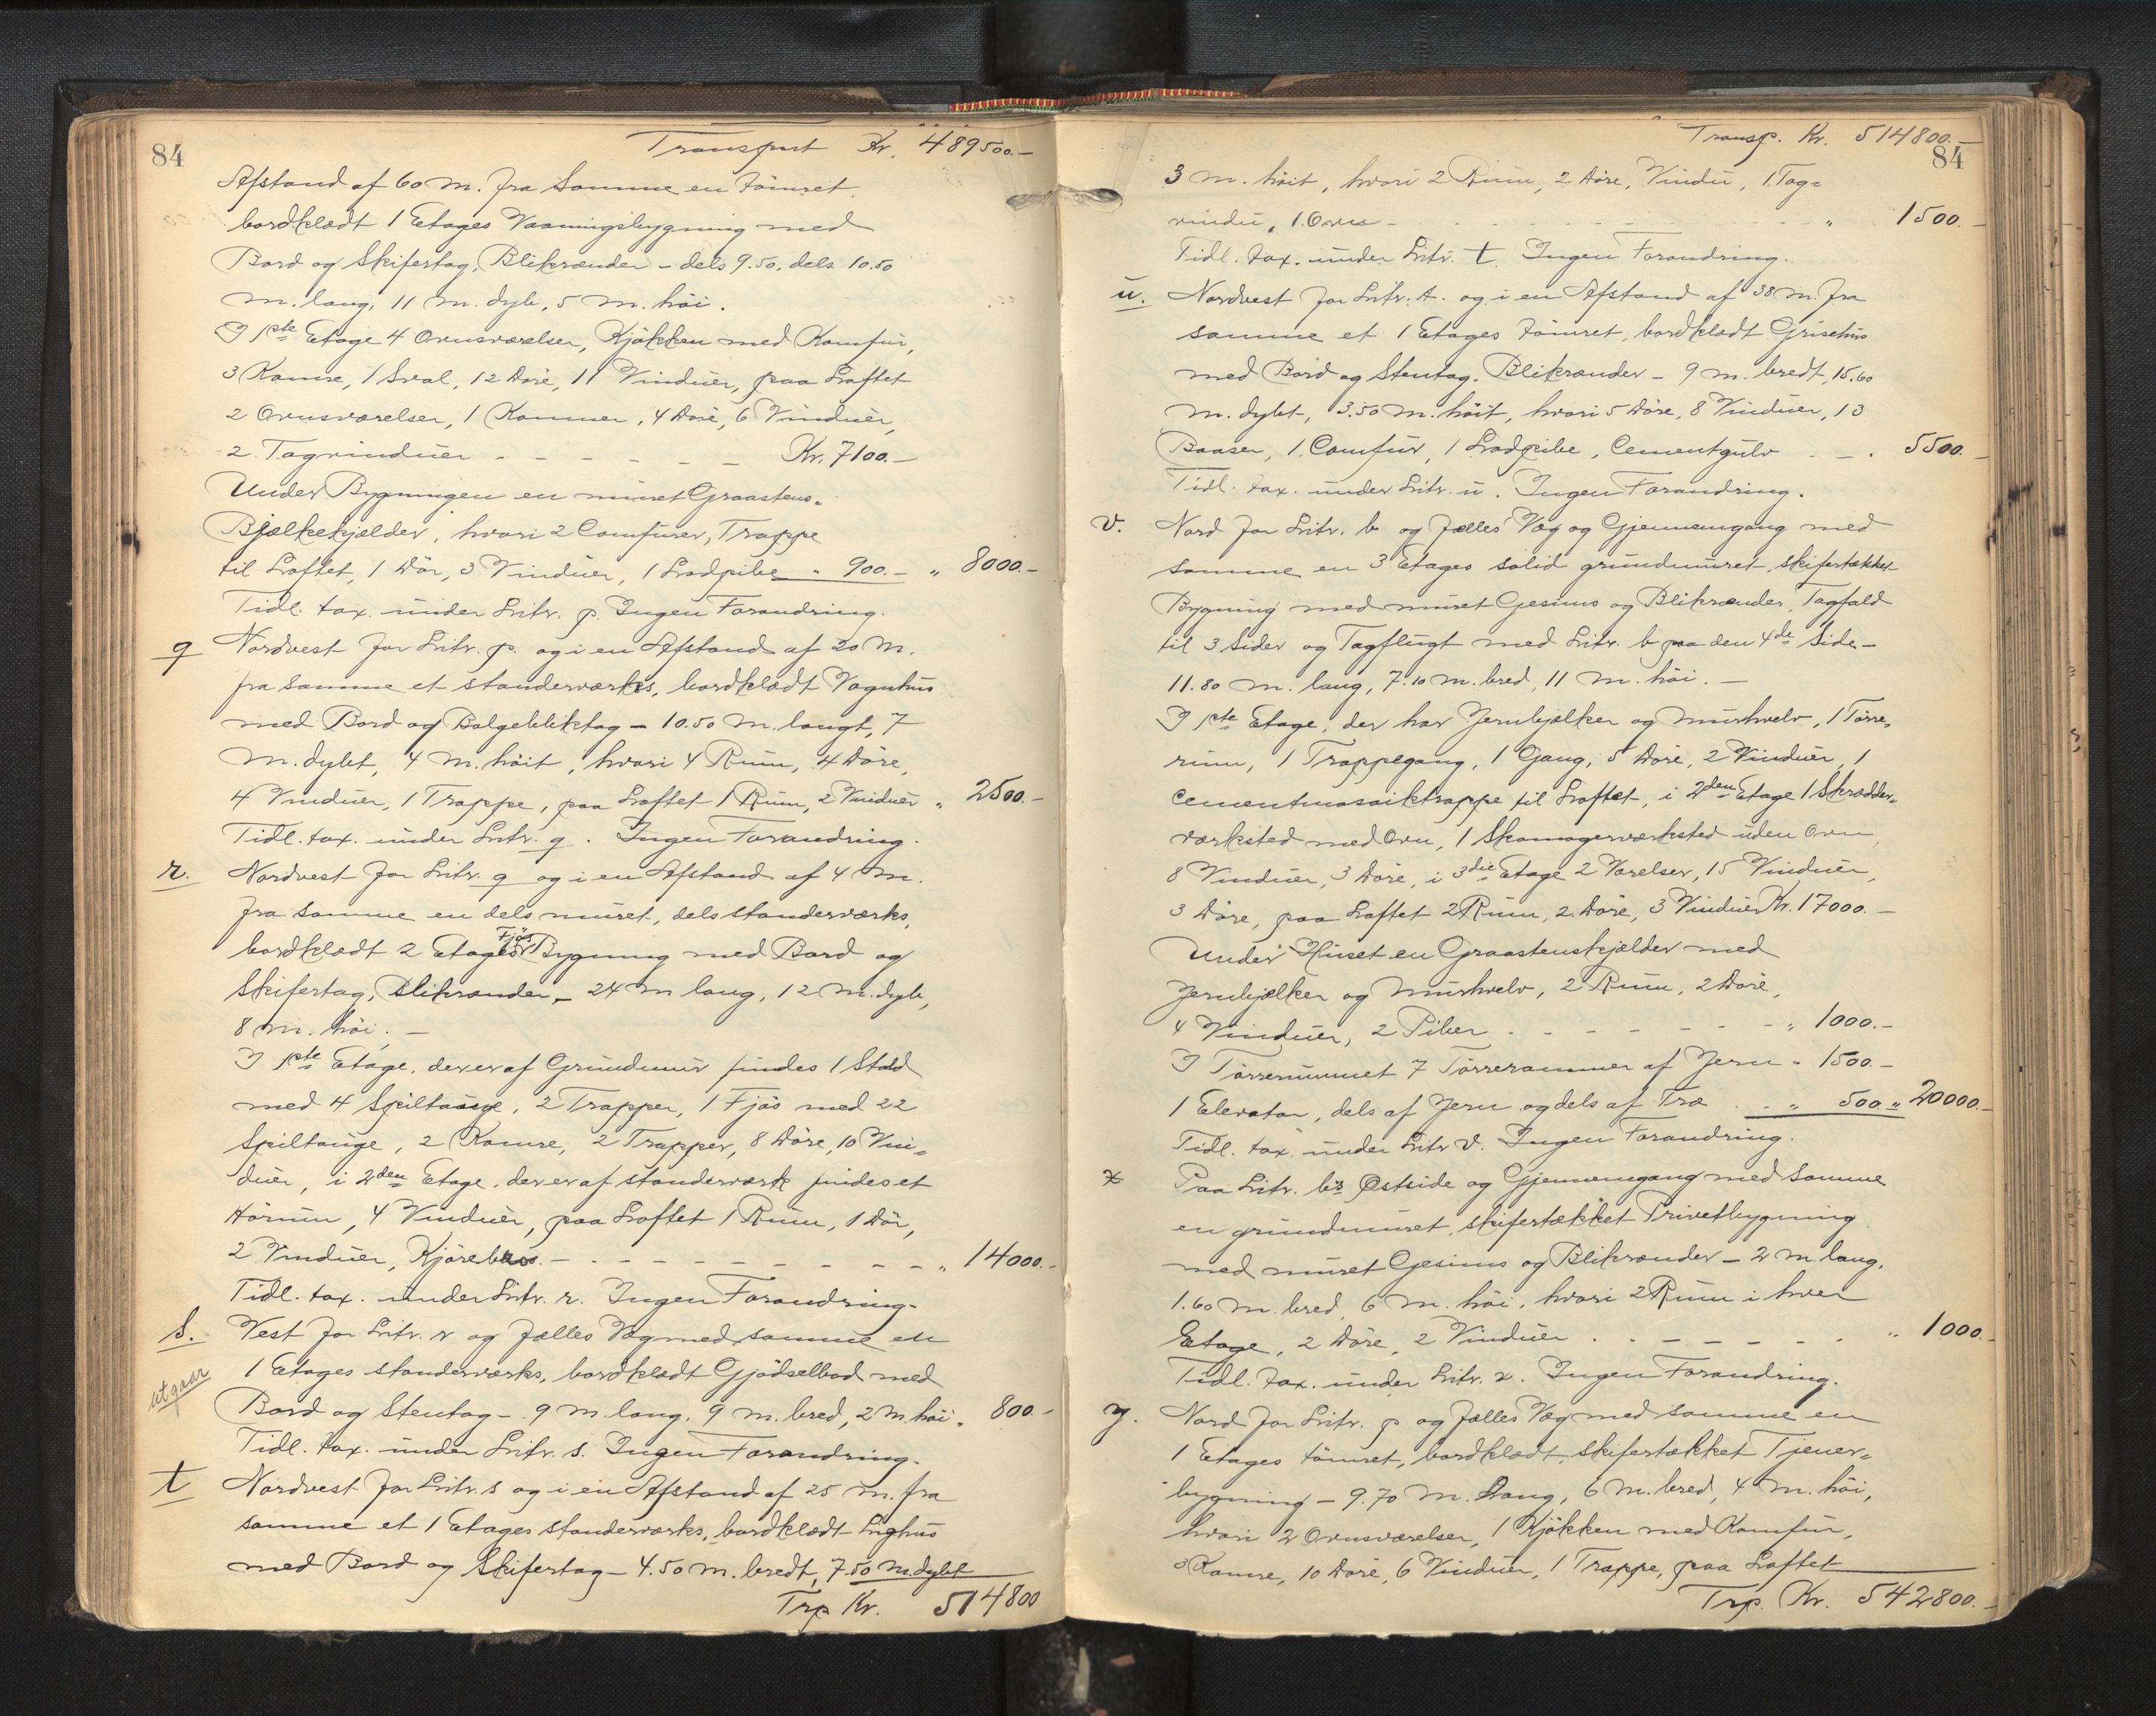 84
Transport Kr. 489500.–
Afstand af 60 m. fra samme en tömret
bordklædt 1 Etages Vaaningsbygning med
Bord og Skifertag, Blikrænder – dels 9.50, dels 10.50
m. lang, 11 m. dyb, 5 m. höi.
I 1ste Etage 4 Ovnsværelser, Kjökken med Komfur,
3 Kamre, 1 Sval, 12 Döre, 11 Vinduer, paa Loftet
2 Ovnsværelser, 1 Kammer, 4 Döre, 6 Vinduer,
2 Tagvinduer – – – – – – Kr. 7100.–
Under Bygningen en muret Graastens-
Bjælkekjælder, hvori 2 Comfurer, Trappe
til Loftet, 1 Dör, 3 Vinduer, 1 Lodpibe " 900.– " 8000.–
Tidl. tax. under Litr. p. Ingen Forandring.
q Nordvest for Litr. p. og i en Afstand af 20 m.
fra samme et standerværks, bordklædt Vognhus
med Bord og Bølgebliktag – 10.50 m. langt, 7
m. dybt, 4 m. höit, hvori 4 Rum, 4 Döre,
4 Vinduer, 1 Trappe, paa Loftet 1 Rum, 2 Vinduer " 2500.–
Tidl. tax. under Litr. q. Ingen Forandring.
r. Nordvest for Litr. q og i en Afstand af 4 m.
fra samme en dels muret, dels standerværks,
Fjös
bordklædt 2 Etages Bygning med Bord og
Skifertag, Blikrænder – 24 m lang, 12 m. dyb,
8 m. höi. –
I 1ste Etage, der er af Grundmur findes 1 Stald
med 4 Spiltauge, 2 Trapper, 1 Fjös med 22
Spiltauge, 2 Kamre, 2 Trapper, 8 Döre, 10 Vin-
duer, i 2den Etage, der er af standerværk findes et
Hörum, 4 Vinduer, paa Loftet 1 Rum, 1 Dör,
2 Vinduer, Kjörebro. – – – – – – – – – " 14000.–
Tidl. tax. under Litr. r. Ingen Forandring.
s. Vest for Litr. r og fælles Væg med samme en
utgaar
1 Etages standerværks, bordklædt Gjödselbod med
Bord og Stentag – 9 m. lang, 9 m. bred, 2 m. höi " 800.–
Tidl. tax. under Litr. s. Ingen Forandring.
t Nordvest for Litr. s og i en Afstand af 25 m. fra
samme et 1 Etages standerværks, bordklædt Lighus
med Bord og Skifertag – 4.50 m. bredt, 7.50 m dybt
Trp Kr. 514800
Transp. Kr. 514800.–
84
3 m. höit, hvori 2 Rum, 2 Döre, Vindu, 1 Tag-
vindu, 1 Ovn – . . . . . . " 1500.–
Tidl. tax. under Litr. t. Ingen Forandring.
u. Nordvest for Litr. t. og i en Afstand af 38 m. fra
samme et 1 Etages tömret, bordklædt Grisehus
med Bord og Stentag, Blikrænder – 9 m. bredt, 15.60
m. dybt, 3.50 m. höit, hvori 5 Döre, 8 Vinduer, 13
Baaser, 1 Comfur, 1 Lodpibe, Cementgulv . – . 5500.–
Tidl. tax. under Litr. u. Ingen Forandring.
v. Nord for Litr. b og fælles Væg og Gjennemgang med
samme en 3 Etages solid grundmuret, skifertækket
Bygning med muret Gesims og Blikrænder, Tagfald
til 3 Sider og Tagflugt med Litr. b paa den 4de Side –
11.80 m. lang, 7.10 m. bred, 11 m. höi. –
I 1ste Etage, der har Jernbjælker og Murhvelv, 1 Törre-
rum, 1 Trappegang, 1 Gang, 5 Döre, 2 Vinduer, 1
Cementmosaiktrappe til Loftet, i 2den Etage 1 Skrædder-
værksted med Ovn, 1 Skomagerværksted uden Ovn
8 Vinduer, 3 Döre, i 3die Etage 2 Værelser, 15 Vinduer,
3 Döre, paa Loftet 2 Rum, 2 Döre, 3 Vinduer Kr. 17000.–
Under Huset en Graastenskjælder med
Jernbjælker og Murhvelv, 2 Rum, 2 Döre,
4 Vinduer, 2 Piber . – – – – – – " 1000.–
I Törrerummet 7 Törrerammer af Jern " 1500.–
1 Elevator, dels af Jern og dels af Træ . . – " 500 " 20000.–
Tidl. tax. under Litr v. Ingen Forandring.
x Paa Litr. b's Østside og Gjennemgang med samme
en grundmuret, skifertækket Privetbygning
med muret Gesims og Blikrænder – 2 m. lang,
1.60 m. bred, 6 m. höi, hvori 2 Rum i hver
Etage, 2 Döre, 2 Vinduer . . – – – – – . " 1000.–
Tidl. tax. under Litr. x. Ingen Forandring.
y. Nord for Litr. p og fælles Væg med samme en
1 Etages tömret, bordklædt, skifertækket Tjener-
bygning – 9.70 m. lang, 6 m. bred, 4 m. höi,
hvori 2 Ovnsværelser, 1 Kjökken med Komfur,
3 Kamre, 10 Döre, 6 Vinduer, 1 Trappe, paa Loftet
Trp. Kr. 542800.–